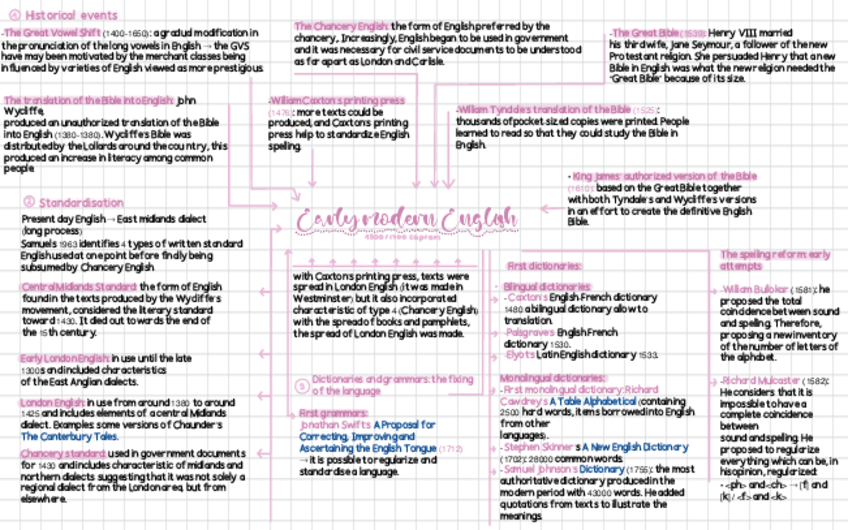 ① Historical events
-The Great Vowel Shift (1400-1650): a gradual modification in
the pronunciation of the long vowels in English → the GVS
have may been motivated by the merchant classes being
influenced by varieties of English viewed as more prestigious.
The Chancery English: the form of English preferred by the
chancery, Increasingly, English began to be used in government
and it was necessary for civil service documents to be understood
as far apart as London and Carlisle.
-The Great Bible (1539): Henry VIII married
his third wife, Jane Seymour, a follower of the new
Protestant religion. She persuaded Henry that a new
Bible in English was what the new religion needed the
'Great Bible' because of its size.
The translation of the Bible into English: John
Wycliffe,
produced an unauthorized translation of the Bible
into English (1380-1380). Wycliffe's Bible was
distributed by the Lollards around the country, this
produced an increase in literacy among common
people.
-William Caxton's printing press
(1476): more texts could be
produced, and Caxton's printing
press help to standardize English
spelling.
-William Tyndale's translation of the Bible (1525):
thousands of pocket-sized copies were printed. People
learned to read so that they could study the Bible in
English.
- King James' authorized version of the Bible
(1610): based on the Great Bible together
with both Tyndale's and Wycliffe's versions
in an effort to create the definitive English
Bible.
Early modern English
② Standardisation
Present day English → East midlands dialect
(long process)
Samuels 1963 identifies 4 types of written standard
English used at one point before finally being
subsumed by Chancery English
Central Midlands Standard: the form of English
found in the texts produced by the Wycliffe's
movement, considered the literary standard
toward 1430. It died out towards the end of
the 15th century.
Early London English: in use until the late
1300s and included characteristics
of the East Anglian dialects.
London English: in use from around 1380 to around
1425 and includes elements of a central Midlands
dialect. Examples: some versions of Chaucer's
The Canterbury Tales.
Chancery standard: used in government documents
for 1430 and includes characteristic of midlands and
northern dialects suggesting that it was not solely a
regional dialect from the London area, but from
elsewhere.
with Caxton's printing press, texts were
spread in London English (it was made in
Westminster) but it also incorporated
characteristic of type 4 (Chancery English)
with the spread of books and pamphlets,
the spread of London English was made.
③ Dictionaries and grammars: the fixing
of the language
First grammars:
Jonathan Swift's A Proposal for
Correcting, Improving and
Ascertaining the English Tongue (1712)
→ it is possible to regularize and
standardise a language.
First dictionaries:
Bilingual dictionaries:
-Caxton's English French dictionary
1480 a bilingual dictionary allow to
translation.
- Palsgrave's English French
dictionary 1530.
- Elyot's Latin English dictionary 1533.
Monolingual dictionaries:
-First monolingual dictionary: Richard
Cawdrey's A Table Alphabetical (containing
2500 hard words, items borrowed into English
from other
languages).
-Stephen Skinner's A New English Dictionary
(1702): 28000 common words.
-Samuel Johnson's Dictionary (1755): the most
authoritative dictionary produced in the
modern period with 43000 words. He added
quotations from texts to illustrate the
meanings.
The spelling reform: early
attempts
-William Bullokar (1581): he
proposed the total
coincidence between sound
and spelling. Therefore,
proposing a new inventory
of the number of letters of
the alphabet.
-Richard Mulcaster (1582):
He considers that it is
impossible to have a
complete coincidence
between
sound and spelling. He
proposed to regularize
everything which can be, in
his opinion, regularized:
- <ph> and <ch> → [f] and
[k] / <f> and <k>